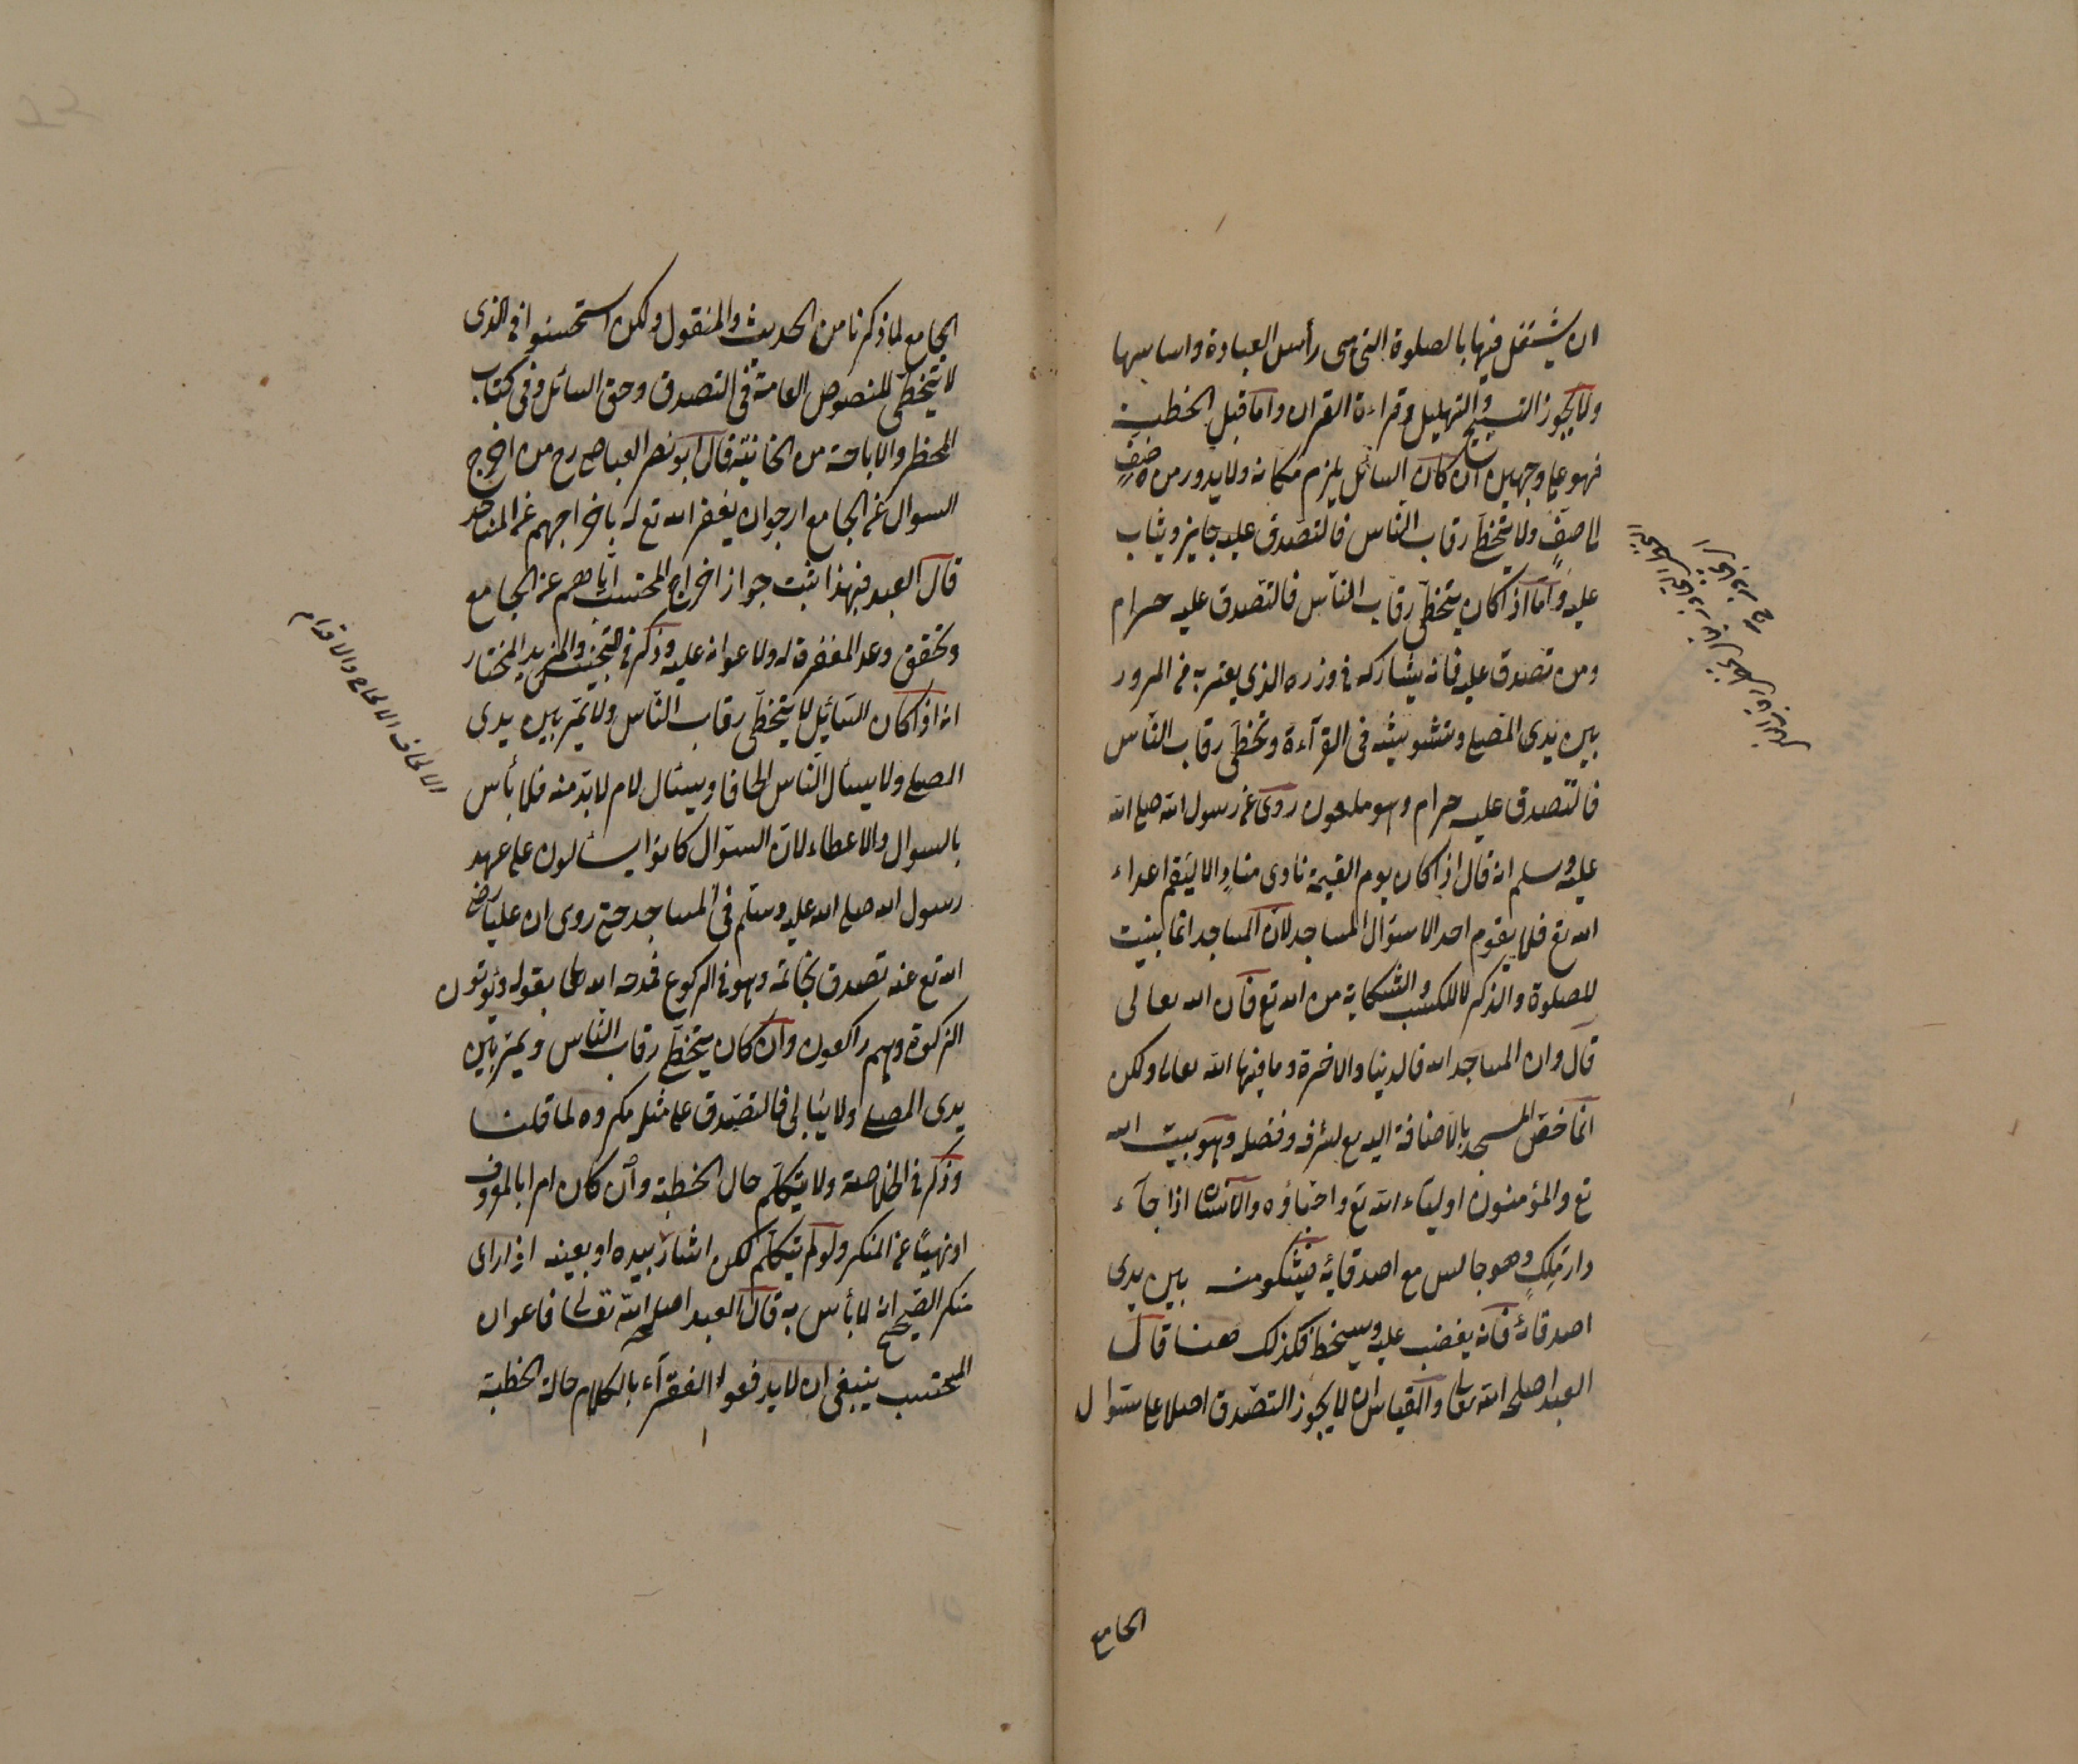 ان يشتغل فيها بالصلوة التى هى رأس العبادة واساسها
ولا يجوز التسبيح والتهليل وقراءة القران واما قبل الخطبة
فهو على وجهين ان كان السائل يلزم مكانه ولا يدور من صفٍ
الى صفٍ ولا يتخطى رقاب الناس فالتصدق عليه جايز ويثاب
عليه واما اذا كان يتخطى رقاب الناس فالتصدق عليه حرام
ومن تصدق عليه فانه يشاركه فى وزره الذى يعتريه فى المرور
بين يدى المصلى وتشويشه فى القرآءة وتخطى رقاب الناس
فالتصدق عليه حرام وهو ملعون روى عن رسول الله صلى الله
عليه وسلم انه قال اذا كان يوم القيمة نادى منادٍ الا ليقم اعداء
الله تع فلا يقوم احد الا سؤال المساجد لان المساجد انما بنيت
للصلوة والذكر لا للكسب والشكاية من الله تع فان الله تعالى
قال وان المساجد لله فالدنيا والاخرة وما فيها لله تعالى ولكن
انما خص المسجد بالاضافة اليه مع لشرفه وفضله وهو بيت الله
تع والمؤمنون اولياء الله تع واحباؤه والانسان اذا جآء
دار ملكٍ وهو جالس مع اصدقائه فيشكو منه بين يدى
اصدقائه فانه يغضب عليه ويسخط فكذلك هنا قال
العبد اصلحه الله تعالى والقياس ان لا يجوز التصدق اصلا على سؤال
الجامع
الجامع لما ذكرنا من الحديث والمنقول ولكن استحسنوا فى الذى
لا يتخطى للنصوص العامة فى التصدق وحق السائل وفى كتاب
الحظر والاباحة من الخانية قال ابو نصر العياضى رح من اخرج
السوال عن الجامع ارجو ان يغفر الله تع له باخراجهم عن المساجد
قال العبد فبهذا يثبت جواز اخراج المحتسب اياهم عن الجامع
وتحقق وعد المغفرة له ولاعوانه عليه وذكر فى التجنيس والمزيد المختار
انه اذا كان السائل لا يتخطى رقاب الناس ولا يمر بين يدى
المصلى ولا يسأل الناس الحافا ويسئال لامر لابد منه فلا بأس
بالسوال والاعطاء لان السوال كانوا يسألون على عهد
رسول الله صلى الله عليه وسلم فى المساجد حتى روى ان عليا رضى
الله تع عنه تصدق بخاتمه وهو فى الركوع فمدحه الله تعالى بقوله ويؤتون
الزكوة وهم راكعون وان كان يتخطى رقاب الناس ويمر بين
يدى المصلى ولا يبالى فالتصدق على مثله مكروه لما قلنا
وذكر فى الخلاصة ولا يتكلم حال الخطبة وان كان امرا بالمعروف
او نهيا عن المنكر ولو لم يتكلم لكن اشار بيده او بعينه اذا راى
منكر الصحيح انه لا بأس به قال العبد اصلحه الله تعالى فاعوان
المحتسب ينبغى ان لا يدفعوا الفقرآء بالكلام حالة الخطبة
الالحاف الالحاح والاقدام